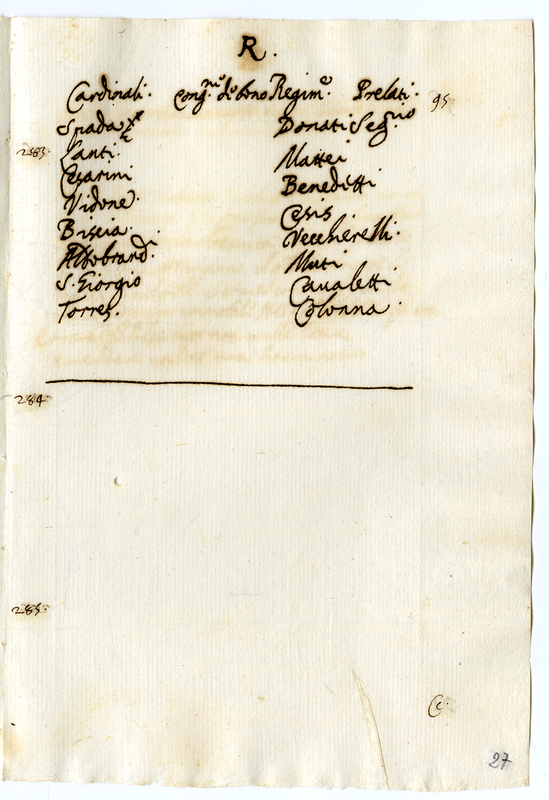 R.
Cardinali. Cong.ne de bono Regim.e Prelati. 95.
Spada Donati Seg.rio
283. Lanti. Mattei
Cesarini Benedetti
Vidone. Cesis
Biscia. Vecchierelli.
Aldobrand. Muti
S. Giorgio Cavaletti
Torres. Colonna
284.
285.
27